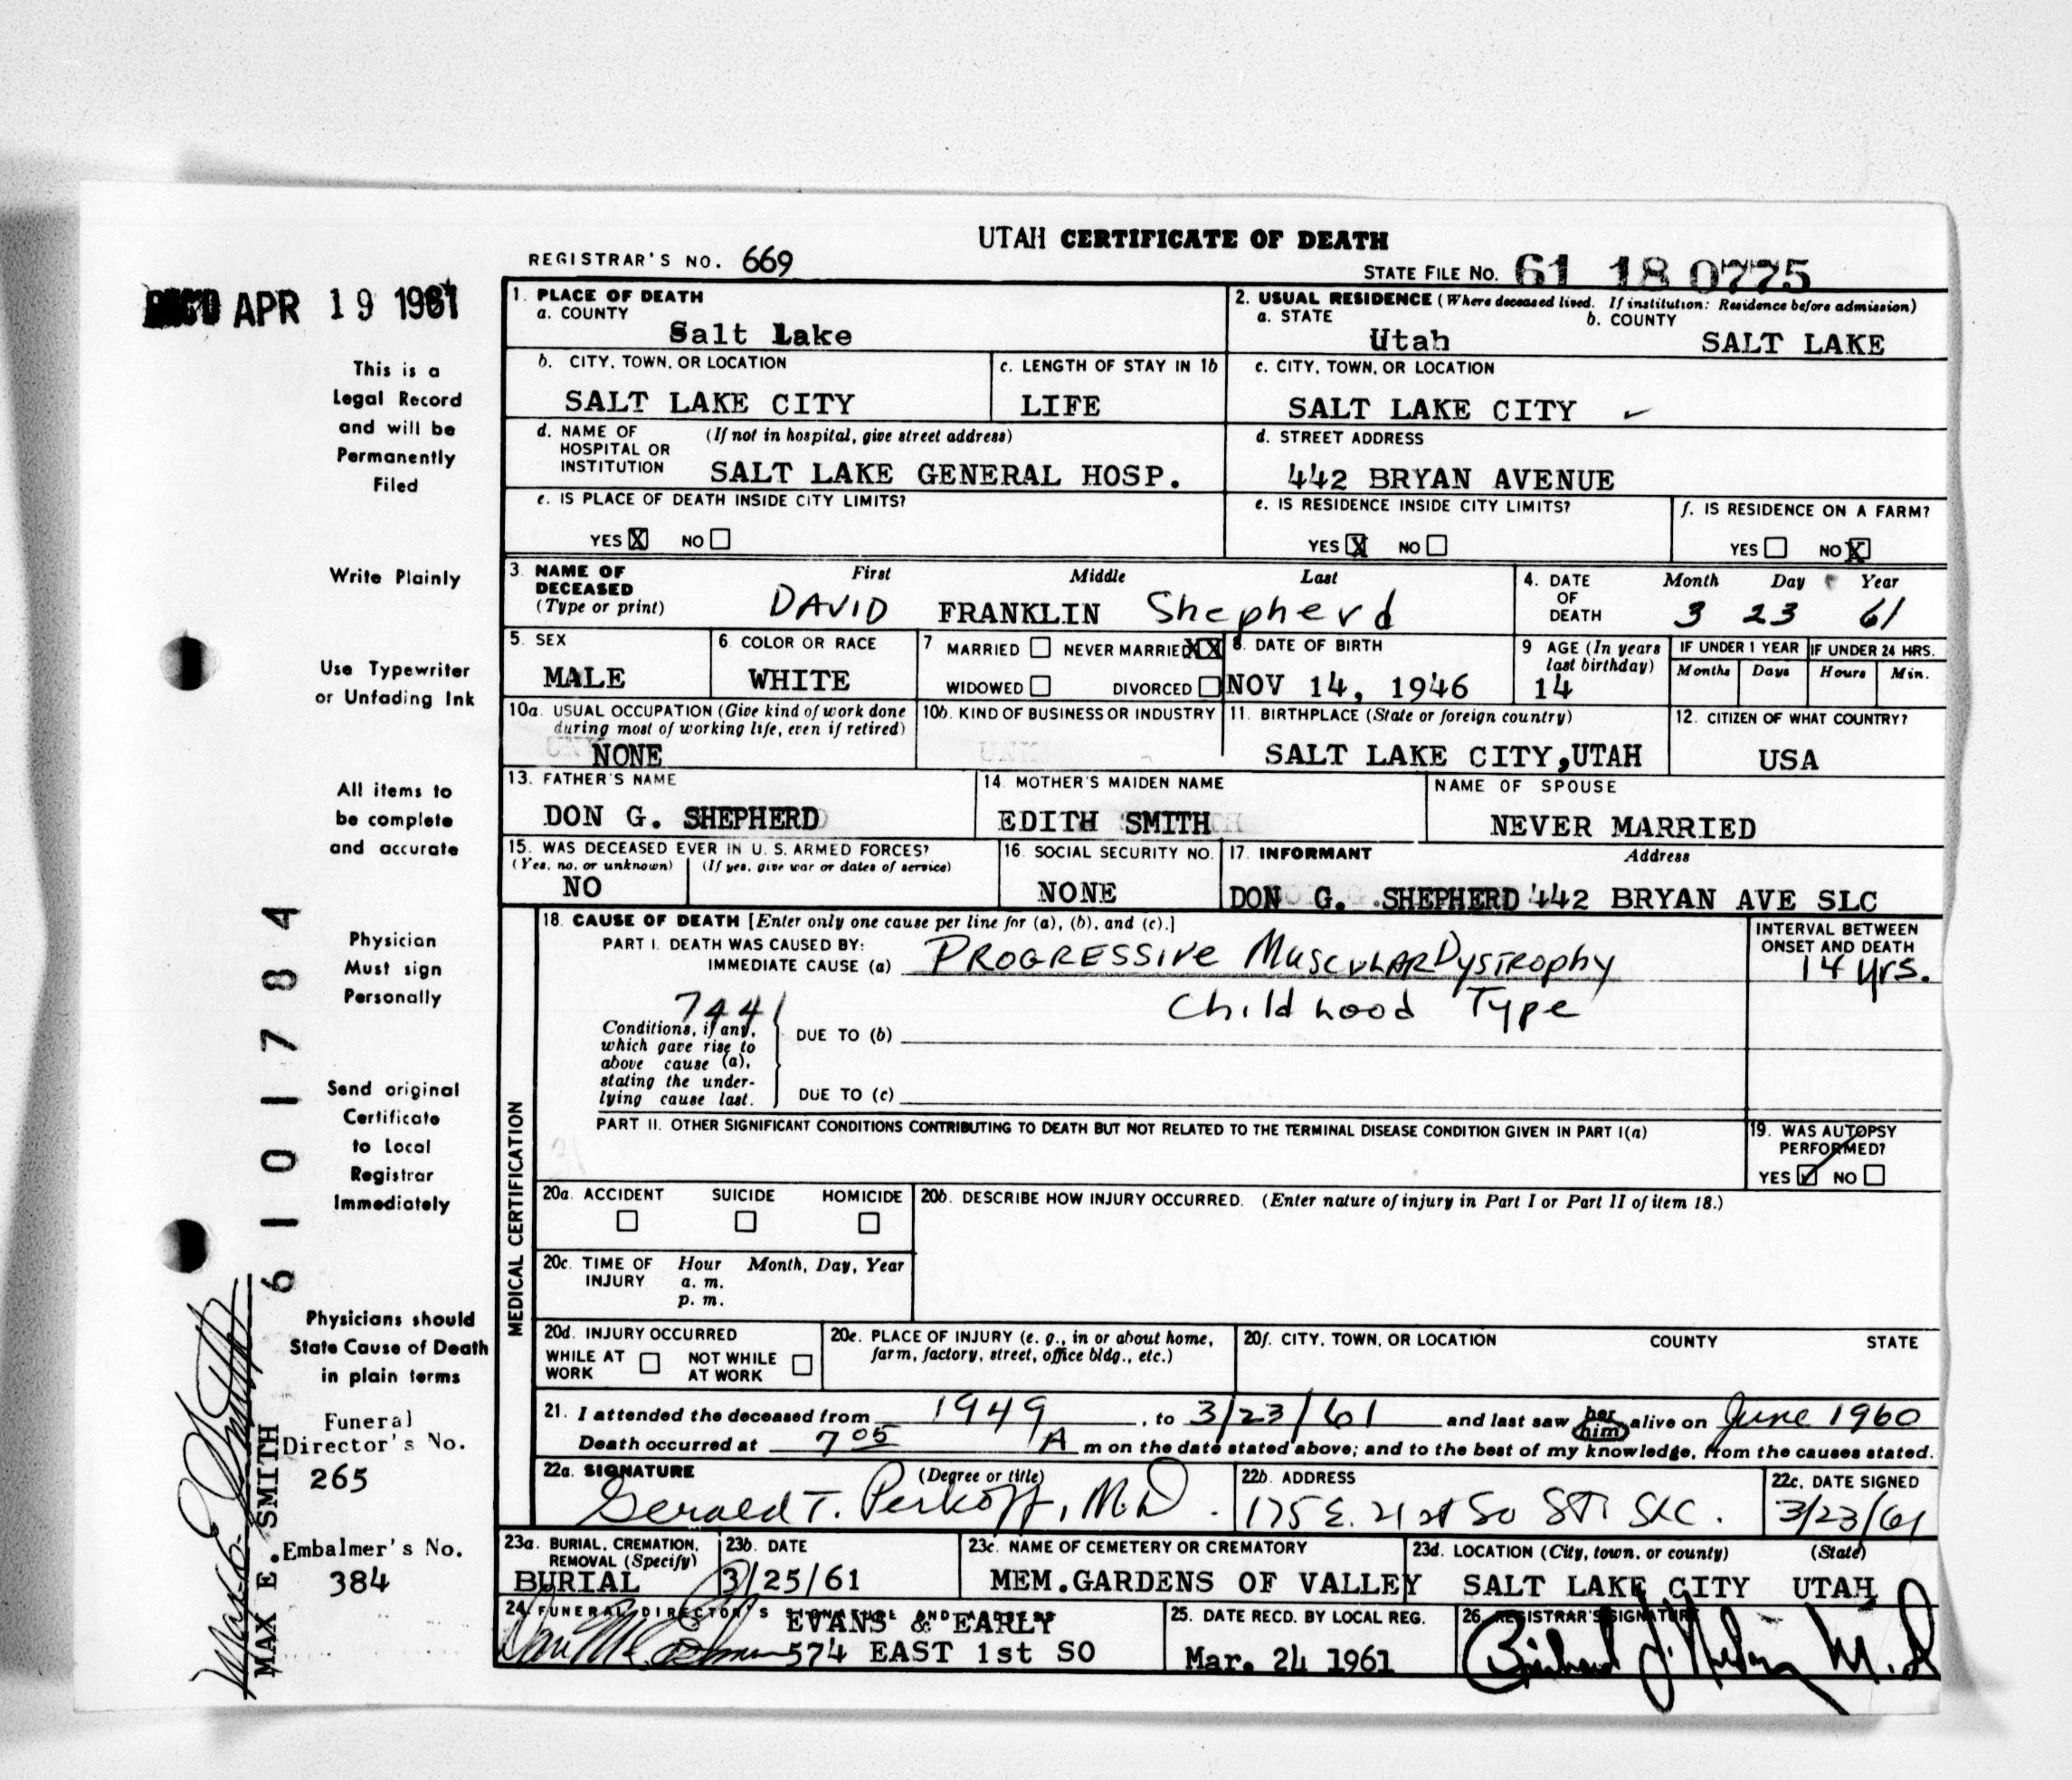 UTAH CERTIFICATE OF DEATH
REGISTRAR'S NO. 669
STATE FILE NO. 61 18 0775
APR 19 1961
This is a
Legal Record
and will be
Permanently
Filed
Write Plainly
Use Typewriter
or Unfading Ink
All items to
be complete
and accurate
Physician
Must sign
Personally
Send original
Certificate
to Local
Registrar
Immediately
Physicians should
State Cause of Death
in plain terms
Funeral
Director's No.
265
Embalmer's No.
384
6101784
Max E. Smith
MAX E. SMITH
1. PLACE OF DEATH
a. COUNTY
Salt Lake
2. USUAL RESIDENCE (Where deceased lived. If institution: Residence before admission)
a. STATE b. COUNTY
Utah SALT LAKE
b. CITY, TOWN, OR LOCATION
SALT LAKE CITY
c. LENGTH OF STAY IN 1b
LIFE
c. CITY, TOWN, OR LOCATION
SALT LAKE CITY ✓
d. NAME OF (If not in hospital, give street address)
HOSPITAL OR
INSTITUTION SALT LAKE GENERAL HOSP.
d. STREET ADDRESS
442 BRYAN AVENUE
e. IS PLACE OF DEATH INSIDE CITY LIMITS?
YES X NO
e. IS RESIDENCE INSIDE CITY LIMITS?
YES X NO
f. IS RESIDENCE ON A FARM?
YES NO X
3. NAME OF First Middle Last
DECEASED
(Type or print) DAVID FRANKLIN Shepherd
4. DATE Month Day Year
OF
DEATH 3 23 61
5. SEX
MALE
6. COLOR OR RACE
WHITE
7 MARRIED NEVER MARRIED XX
WIDOWED DIVORCED
8. DATE OF BIRTH
NOV 14, 1946
9 AGE (In years
last birthday)
14
IF UNDER 1 YEAR IF UNDER 24 HRS.
Months Days Hours Min.
10a. USUAL OCCUPATION (Give kind of work done
during most of working life, even if retired)
NONE
10b. KIND OF BUSINESS OR INDUSTRY
11. BIRTHPLACE (State or foreign country)
SALT LAKE CITY,UTAH
12. CITIZEN OF WHAT COUNTRY?
USA
13. FATHER'S NAME
DON G. SHEPHERD
14. MOTHER'S MAIDEN NAME
EDITH SMITH
NAME OF SPOUSE
NEVER MARRIED
15. WAS DECEASED EVER IN U. S. ARMED FORCES?
(Yes, no, or unknown) (If yes, give war or dates of service)
NO
16. SOCIAL SECURITY NO.
NONE
17. INFORMANT Address
DON G. SHEPHERD 442 BRYAN AVE SLC
MEDICAL CERTIFICATION
18. CAUSE OF DEATH [Enter only one cause per line for (a), (b), and (c).]
PART I. DEATH WAS CAUSED BY:
IMMEDIATE CAUSE (a) PROGRESSIVE MUSCULAR DYSTROPHY
Childhood Type
INTERVAL BETWEEN
ONSET AND DEATH
14 yrs.
7441
Conditions, if any,
which gave rise to
above cause (a),
stating the under-
lying cause last.
DUE TO (b)
DUE TO (c)
PART II. OTHER SIGNIFICANT CONDITIONS CONTRIBUTING TO DEATH BUT NOT RELATED TO THE TERMINAL DISEASE CONDITION GIVEN IN PART I(a)
19. WAS AUTOPSY
PERFORMED?
YES ✓ NO
20a. ACCIDENT SUICIDE HOMICIDE
20b. DESCRIBE HOW INJURY OCCURRED. (Enter nature of injury in Part I or Part II of item 18.)
20c. TIME OF Hour Month, Day, Year
INJURY a. m.
p. m.
20d. INJURY OCCURRED
WHILE AT NOT WHILE
WORK AT WORK
20e. PLACE OF INJURY (e. g., in or about home,
farm, factory, street, office bldg., etc.)
20f. CITY, TOWN, OR LOCATION COUNTY STATE
21. I attended the deceased from 1949, to 3/23/61 and last saw her him alive on June 1960
Death occurred at 7 05 A m on the date stated above; and to the best of my knowledge, from the causes stated.
22a. SIGNATURE (Degree or title)
Gerald T. Perkoff, M.D.
22b. ADDRESS
175 E. 21st So St. SLC.
22c. DATE SIGNED
3/23/61
23a. BURIAL, CREMATION,
REMOVAL (Specify)
BURIAL
23b. DATE
3/25/61
23c. NAME OF CEMETERY OR CREMATORY
MEM.GARDENS OF VALLEY
23d. LOCATION (City, town, or county) (State)
SALT LAKE CITY UTAH
24. FUNERAL DIRECTOR'S SIGNATURE AND ADDRESS
EVANS & EARLY
574 EAST 1st SO
25. DATE RECD. BY LOCAL REG.
Mar. 24 1961
26. REGISTRAR'S SIGNATURE
M.D